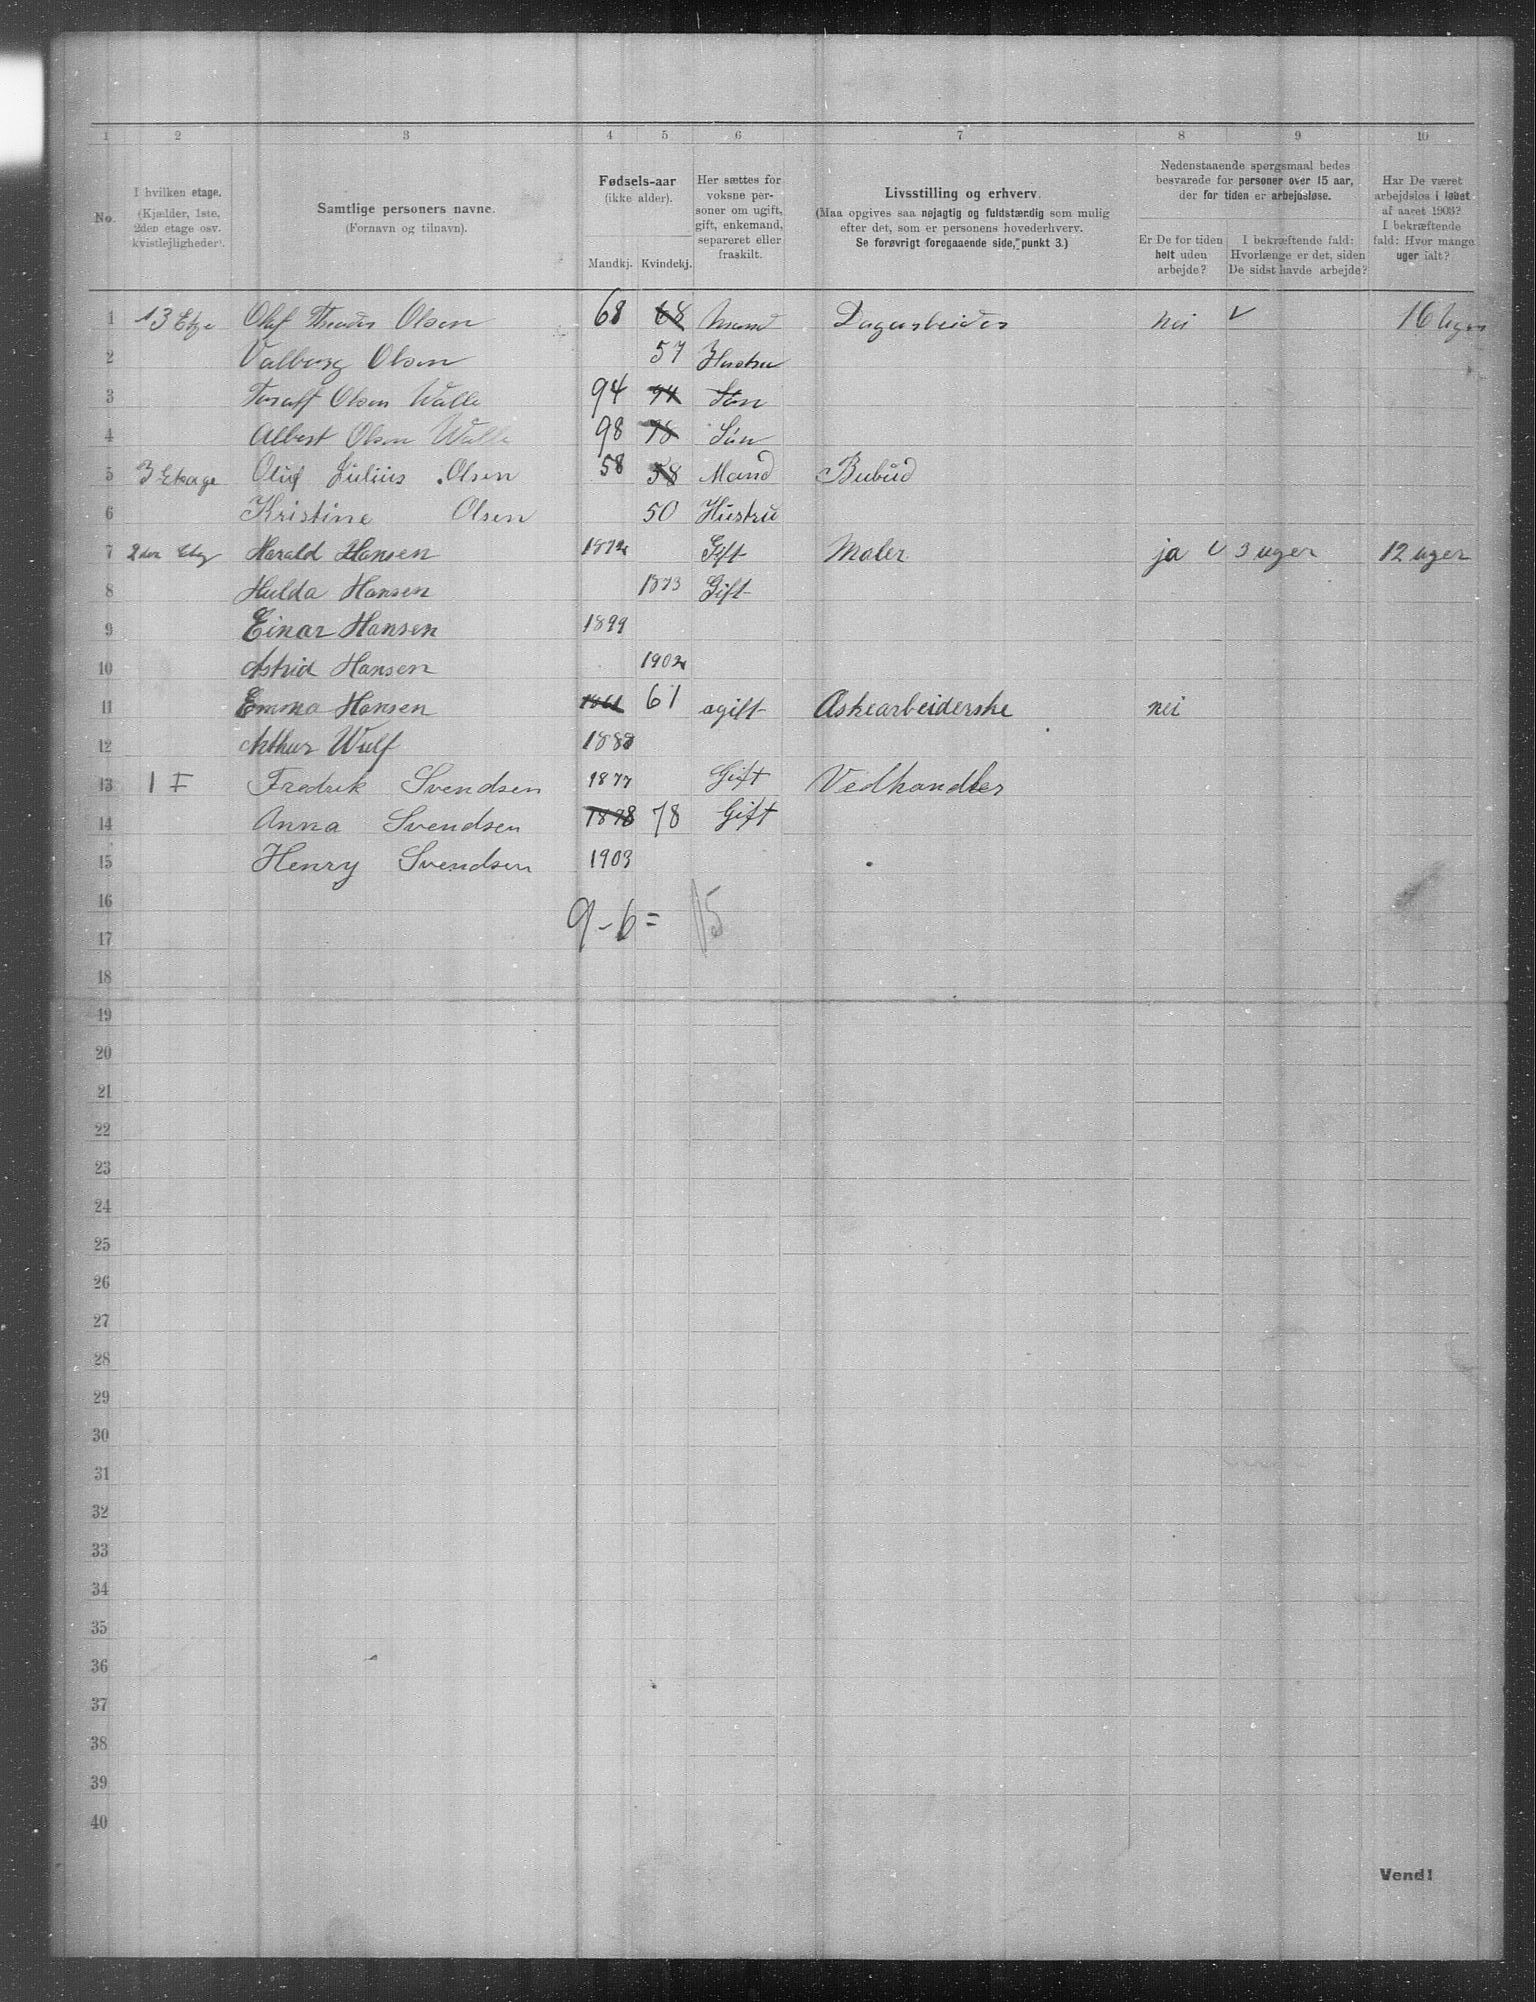 1 2 3 4 5 6 7 8 9 10
No.
I hvilken etage.
(Kjælder, 1ste,
2den etage osv.
kvistlejligheder).
Samtlige personers navne.
(Fornavn og tilnavn).
Fødsels-aar
(ikke alder).
Mandkj. Kvindekj.
Her sættes for
voksne per-
soner om ugift,
gift, enkemand,
separeret eller
fraskilt.
Livsstilling og erhverv.
(Maa opgives saa nøjagtig og fuldstændig som mulig
efter det, som er personens hovederhverv.
Se forøvrigt foregaaende side, punkt 3.)
Nedenstaaende spørgsmaal bedes
besvarede for personer over 15 aar,
der for tiden er arbejdsløse.
Er De for tiden
helt uden
arbejde?
I bekræftende fald:
Hvorlænge er det, siden
De sidst havde arbejde?
Har De været
arbejdsløs i løbet
af aaret 1903?
I bekræftende
fald: Hvor mange
uger ialt?
1 3 Etge Olaf Olsen 68 68 Mand Dagarbeider nei 16 Uger
2 Valborg Olsen 57 Hustru
3 Toralf Olsen Walle 94 94 Søn
4 Albert Olsen Walle 98 98 Søn
5 3 Etage Oluf Julius Olsen 58 58 Mand Bubud
6 Kristine Olsen 50 Hustru
7 2den Etg Harald Hansen 1872 Gift Maler ja 3 uger 12 uger
8 Hulda Hansen 1873 Gift
9 Einar Hansen 1899
10 Astrid Hansen 1902
11 Emma Hansen 1861 61 ugift Askearbeiderske nei
12 Arthur Wulf 1888
13 1 Fredrik Svendsen 1877 Gift Vedhandler
14 Anna Svendsen 1878 78 Gift
15 Henry Svendsen 1903
16
9-6= 15
17
18
19
20
21
22
23
24
25
26
27
28
29
30
31
32
33
34
35
36
37
38
39
40
Vend!